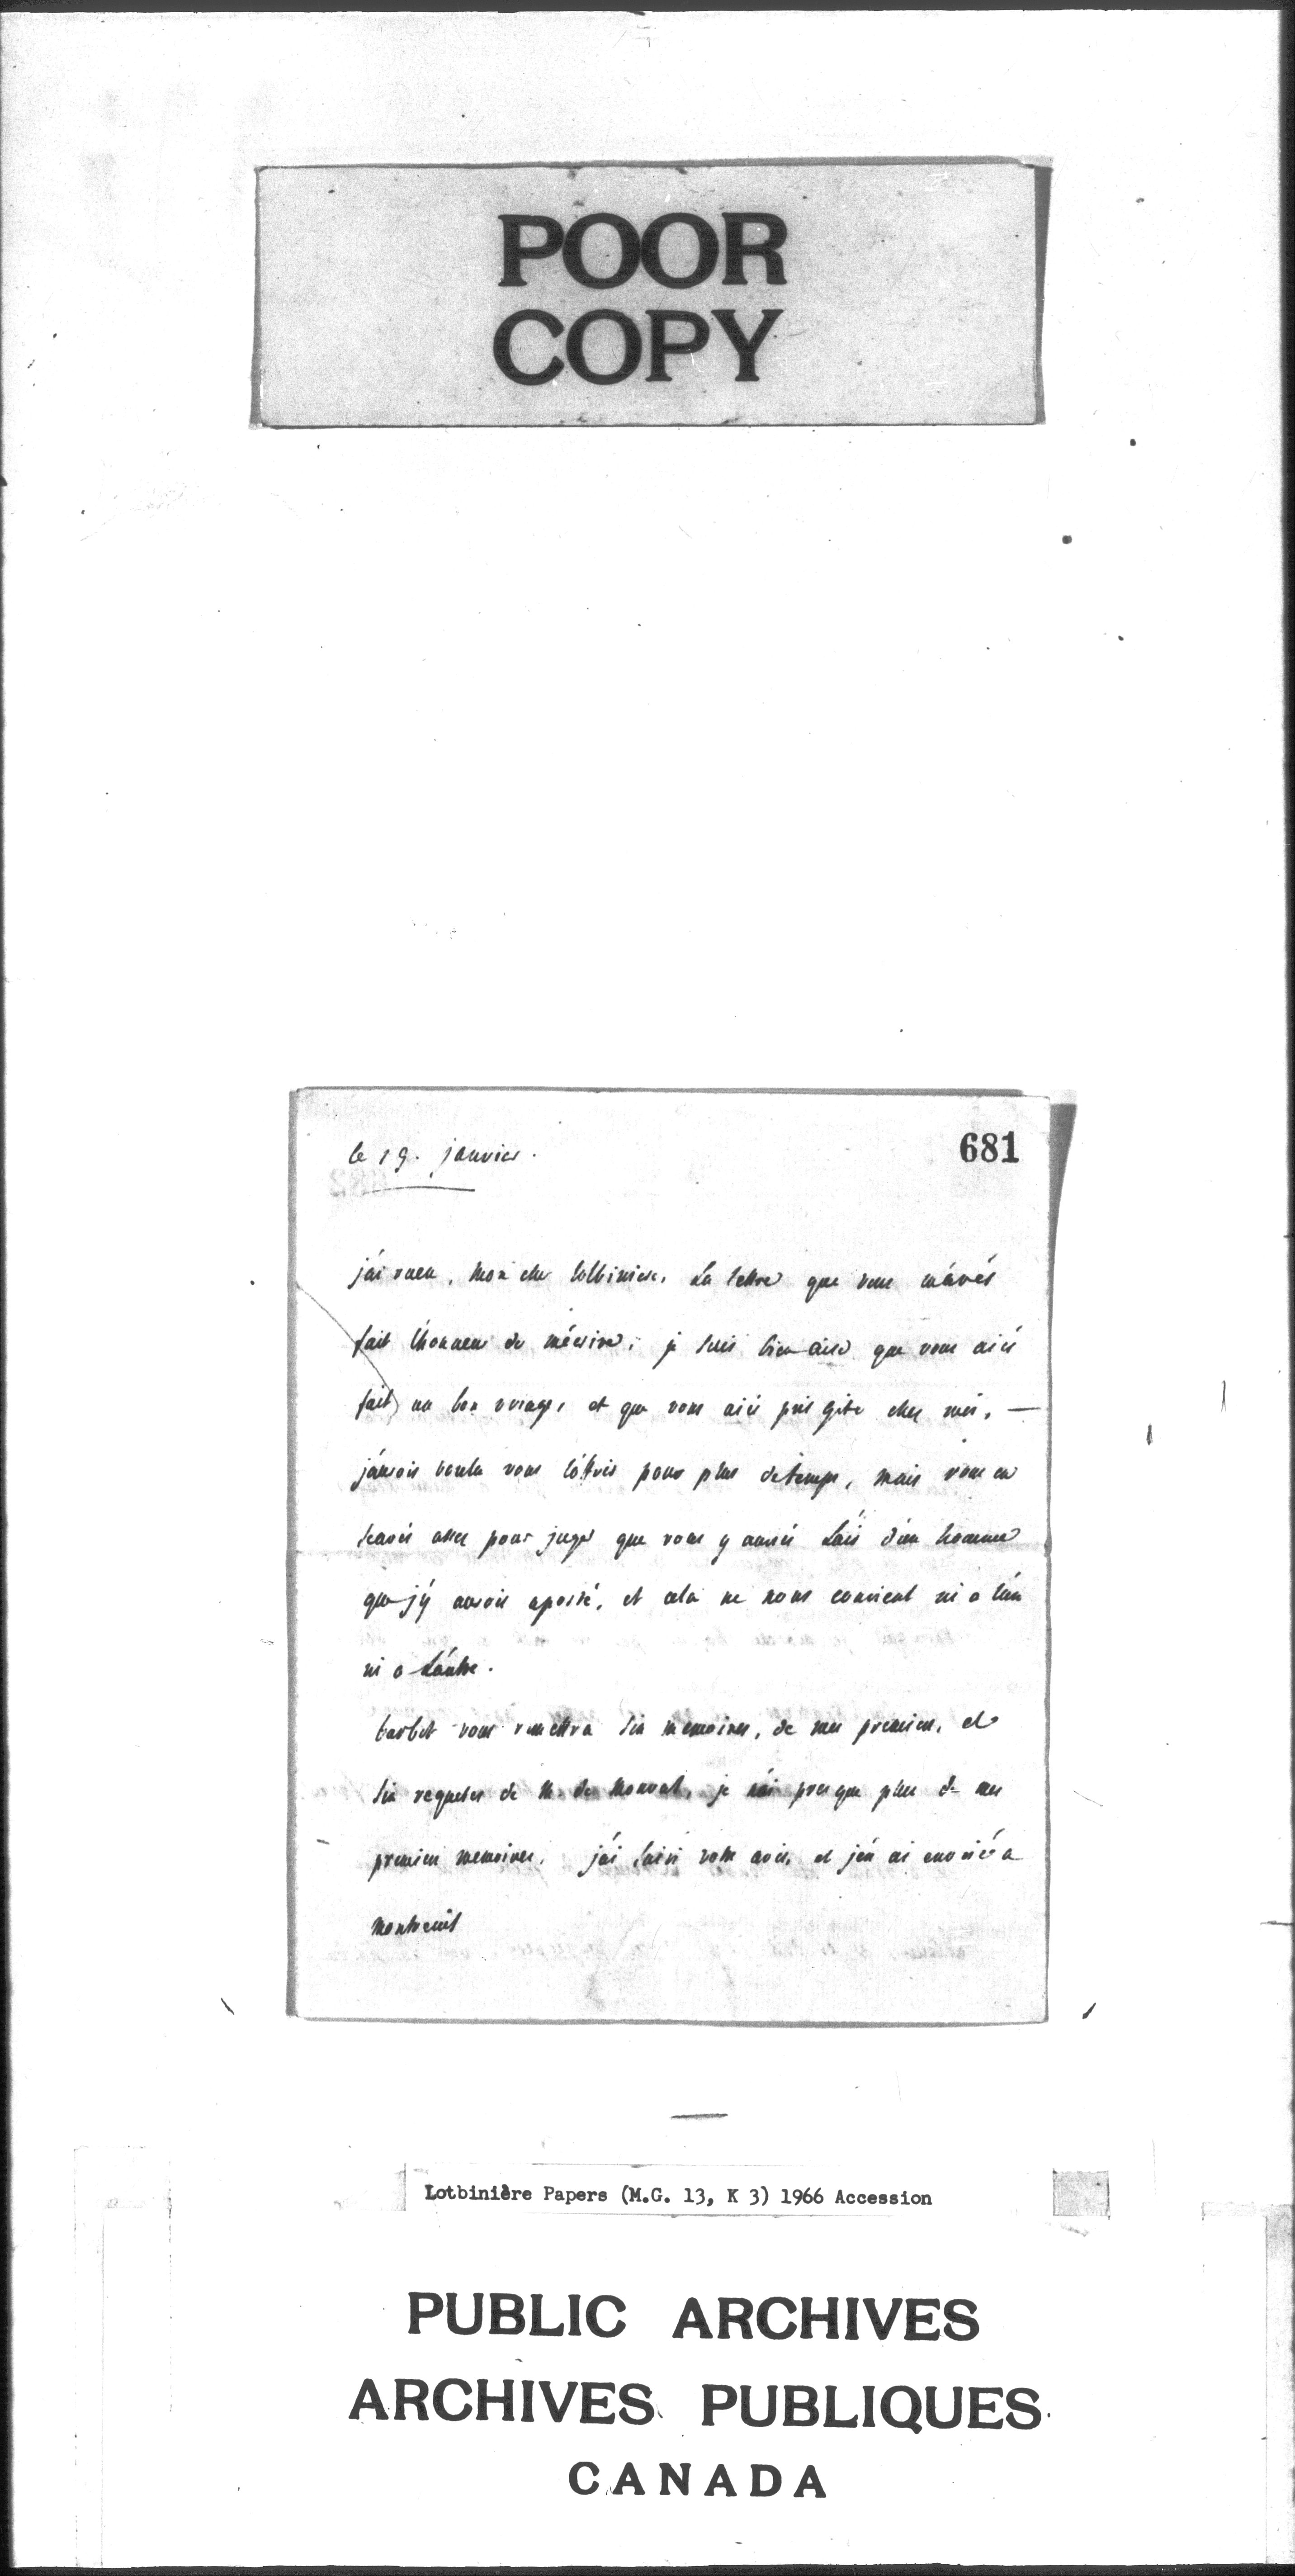 POOR
COPY
681
le 19. janvier.
j'ai recu, mon cher lotbiniere, La lettre que vous m'avés
fait l'honneur de m'écrire; je suis bien aise que vous aiés
fait un bon voiage, et que vous aiés pris gite chez moi, —
j'aurois voulu vous l'offrir pour plus de temps, mais vous en
scavés assez pour juger que vous y auriés L'air d'un homme
que j'y aurois aposté, et cela ne nous convient ni a l'un
ni a L'autre.
barbet vous remettra six memoires, de mes premiers, et
six requetes de M. de ; je n'ai presque plus de mes
premiers memoires. j'ai saisi votre avis, et j'en ai envoié a
Montreuil
Lotbinière Papers (M.G. 13, K 3) 1966 Accession
PUBLIC ARCHIVES
ARCHIVES PUBLIQUES
CANADA